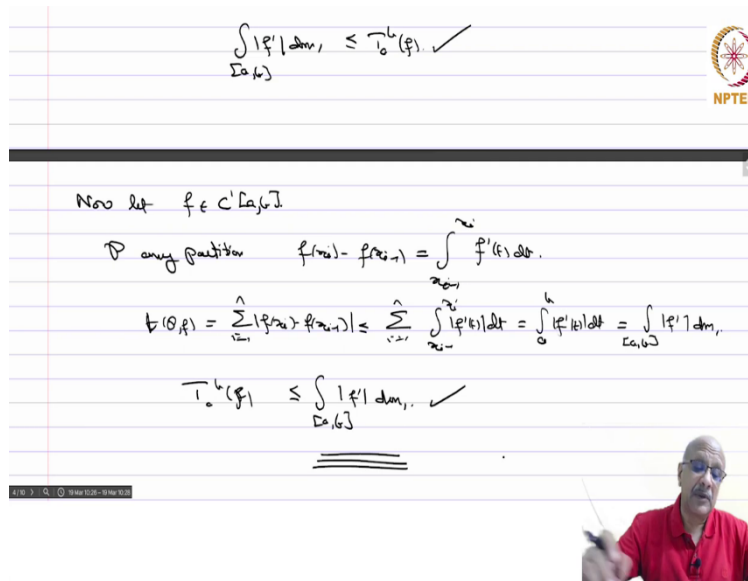 ∫_{[a,b]} |f'| dm₁ ≤ T_a^b(f). ✓
NPTE
Now let f ∈ C'[a,b].
P any partition f(x_i) - f(x_{i-1}) = ∫_{x_{i-1}}^{x_i} f'(t) dt.
t(P,f) = Σ_{i=1}^n |f(x_i) - f(x_{i-1})| ≤ Σ_{i=1}^n ∫_{x_{i-1}}^{x_i} |f'(t)| dt = ∫_a^b |f'(t)| dt = ∫_{[a,b]} |f'| dm₁.
T_a^b(f) ≤ ∫_{[a,b]} |f'| dm₁. ✓
4/10 19 Mar 10:26 - 19 Mar 10:28